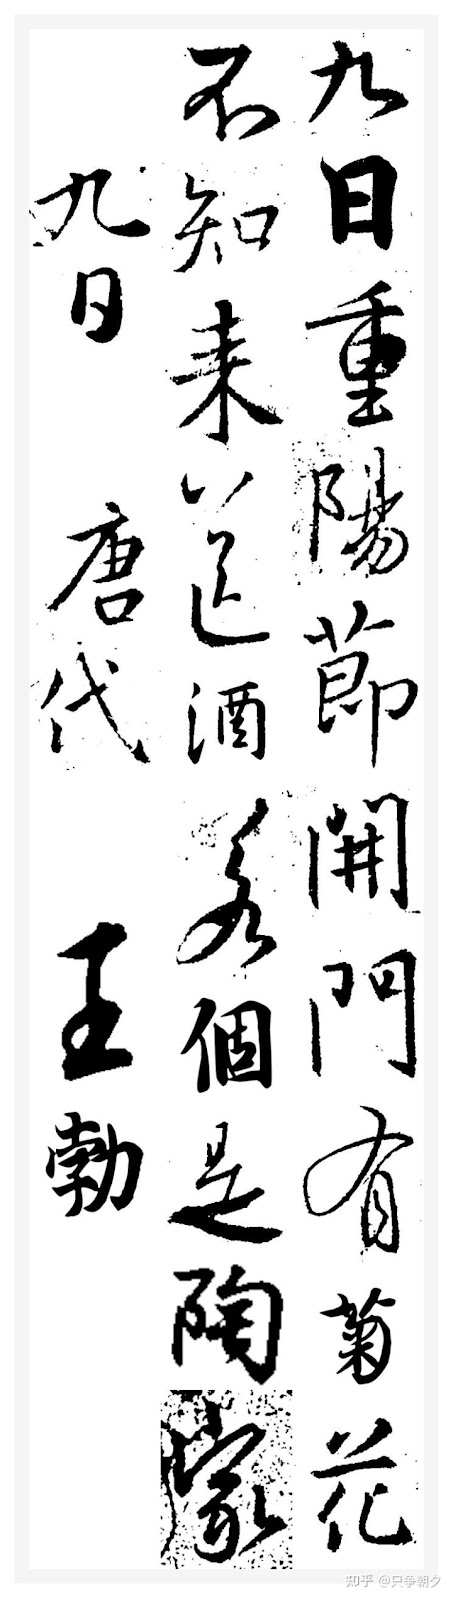 九日重陽節開門有菊花
不知来送酒若個是陶家
九日 唐代 王勃
知乎 @只争朝夕